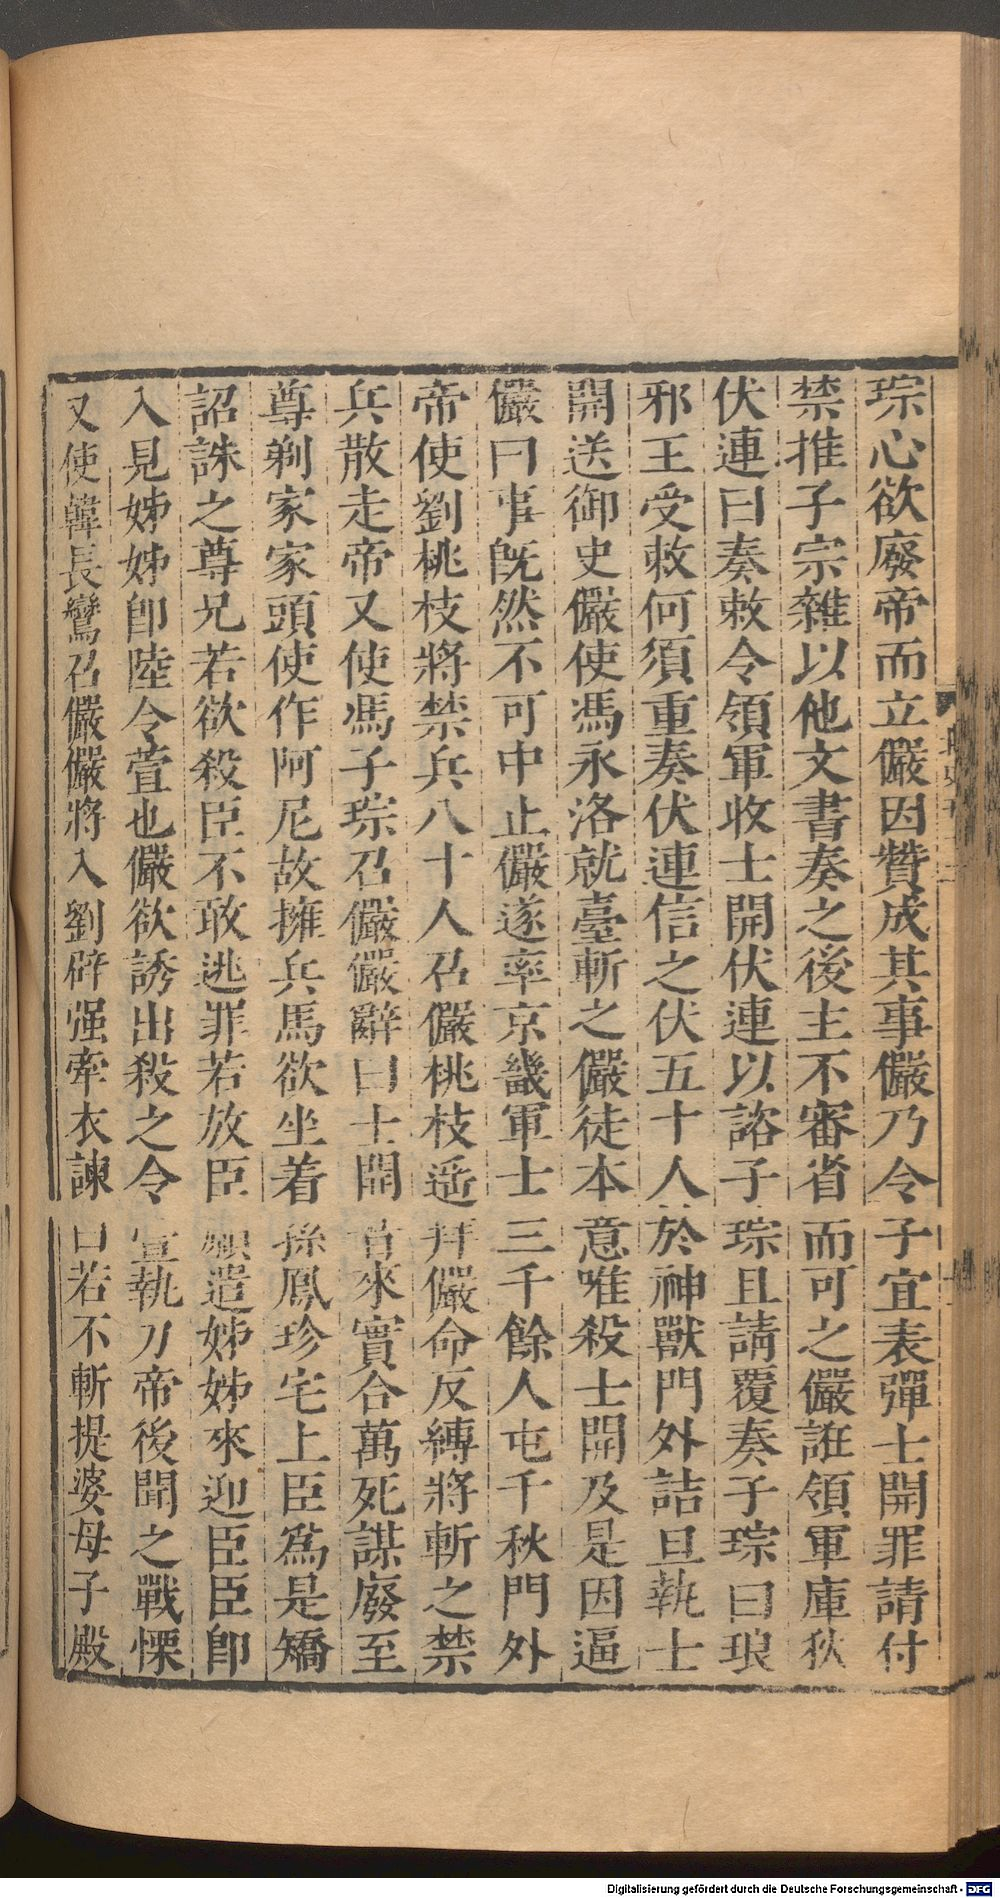 琮心欲廢帝而立儼因贊成其事儼乃令子宜表彈士開罪請付
禁推子宗雜以他文書奏之後主不審省而可之儼誑領軍庫狄
伏連曰奏敕令領軍收士開伏連以諮子琮且請覆奏子琮曰琅
邪王受敕何須重奏伏連信之伏五十人於神獸門外詰旦執士
開送御史儼使馮永洛就臺斬之儼徒本意唯殺士開及是因逼
儼曰事旣然不可中止儼遂率京畿軍士三千餘人屯千秋門外
帝使劉桃枝將禁兵八十人召儼桃枝遥拜儼命反縛將斬之禁
兵散走帝又使馮子琮召儼儼辭曰士開昔來實合萬死謀廢至
尊剃家家頭使作阿尼故擁兵馬欲坐着孫鳳珍宅上臣爲是矯
詔誅之尊兄若欲殺臣不敢逃罪若放臣願遣姊姊來迎臣臣卽
入見姊姊卽陸令萱也儼欲誘出殺之令萱執刀帝後聞之戰慄
又使韓長鸞召儼儼將入劉辟强牽衣諫曰若不斬提婆母子殿
Digitalisierung gefördert durch die Deutsche Forschungsgemeinschaft - DFG